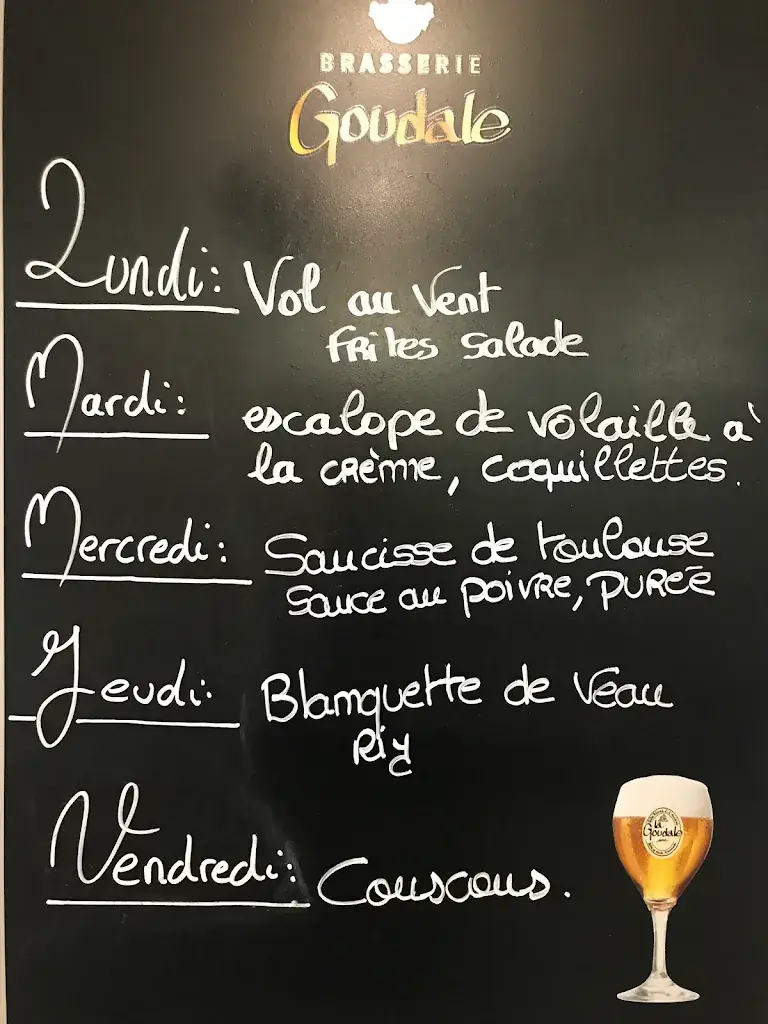 BRASSERIE
Goudale
Lundi: Vol au Vent
frites salade
Mardi: escalope de volaille à
la crème, coquillettes.
Mercredi: Saucisse de toulouse
sauce au poivre, purée
Jeudi: Blanquette de veau
Riz
Vendredi: Couscous.
la
Goudale